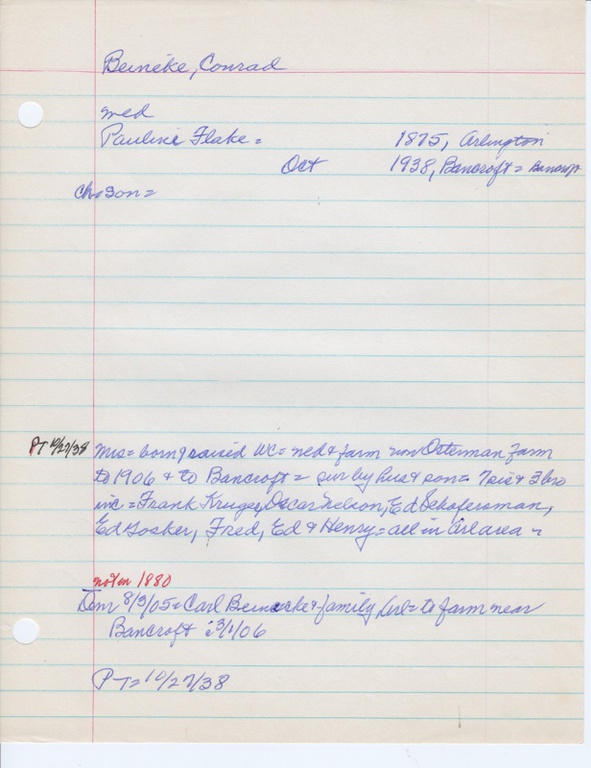 Beineke, Conrad
med
Pauline Flake = 1875, Arlington
Oct 1938, Bancroft = Bancroft
Ch=son=
PT 10/27/38 Mrs= born & raised WC= med & farm now Osterman Farm
to 1906 & to Bancroft = sur by hus & son = 7 sis & 3 bro
inc = Frank Kruger, Oscar Nelson, Ed Schafersman,
Ed Gosker, Fred, Ed & Henry = all in Arl area
not in 1880
Dem 8/3/05 = Carl Beinecke & family = to farm near
Bancroft 3/1/06
PT = 10/27/38